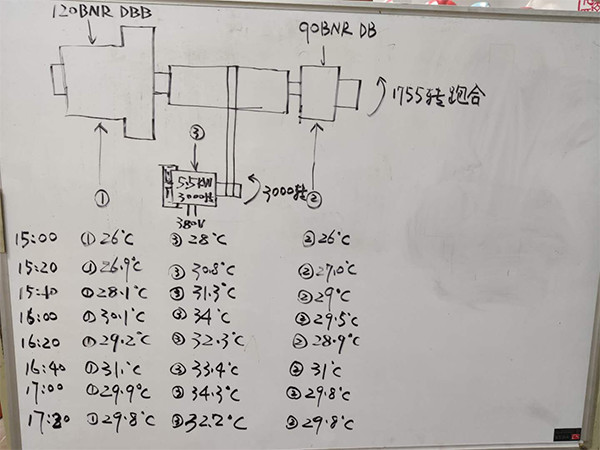 120BNR DBB
90BNR DB
1755转跑合
③
5.5KW
3000转
3000转
380V
①
②
15:00 ①26℃ ③28℃ ②26℃
15:20 ①26.9℃ ③30.8℃ ②27.0℃
15:40 ①28.1℃ ③31.3℃ ②29℃
16:00 ①30.1℃ ③34℃ ②29.5℃
16:20 ①29.2℃ ③32.3℃ ②28.9℃
16:40 ①31.℃ ③33.4℃ ②31℃
17:00 ①29.9℃ ③34.3℃ ②29.8℃
17:20 ①29.8℃ ③32.2℃ ②29.8℃